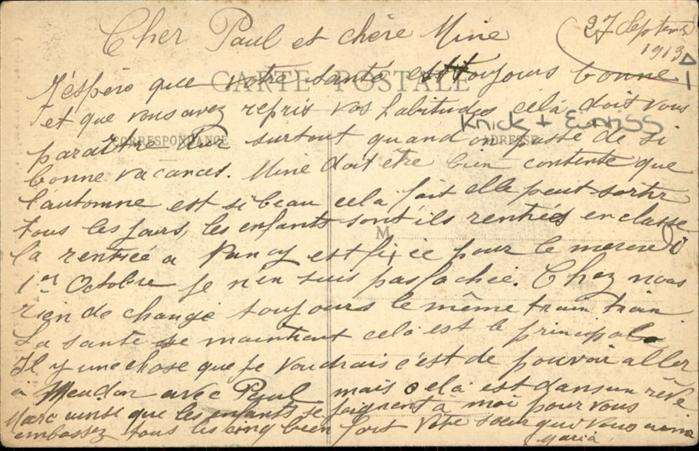 27 Septembre
1913
Cher Paul et chère Mine
J'espère que votre santé est toujours bonne
CARTE POSTALE
et que vous avez repris vos habitudes cela doit vous
Knick + Eunss
CORRESPONDANCE
ADRESSE
paraître dur surtout quand on passe de si
bonne vacances. Mine doit être bien contente que
l'automne est si beau cela fait elle peut sortir
tous les jours, les enfants sont ils rentrées en classe
M
la rentrée a Nancy est fixée pour le mercredi
1er Octobre je n'en suis pas fachée. Chez nous
rien de changé toujours le même train train
La santé se maintient cela est le principal
Il y une chose que je voudrais c'est de pouvoir aller
a Meudon avec Paul mais cela est dans un rêve
Marc ainsi que les enfants se joignent a moi pour vous
embassez tous les cinq bien fort Vote sœur qui vous aime
Maria